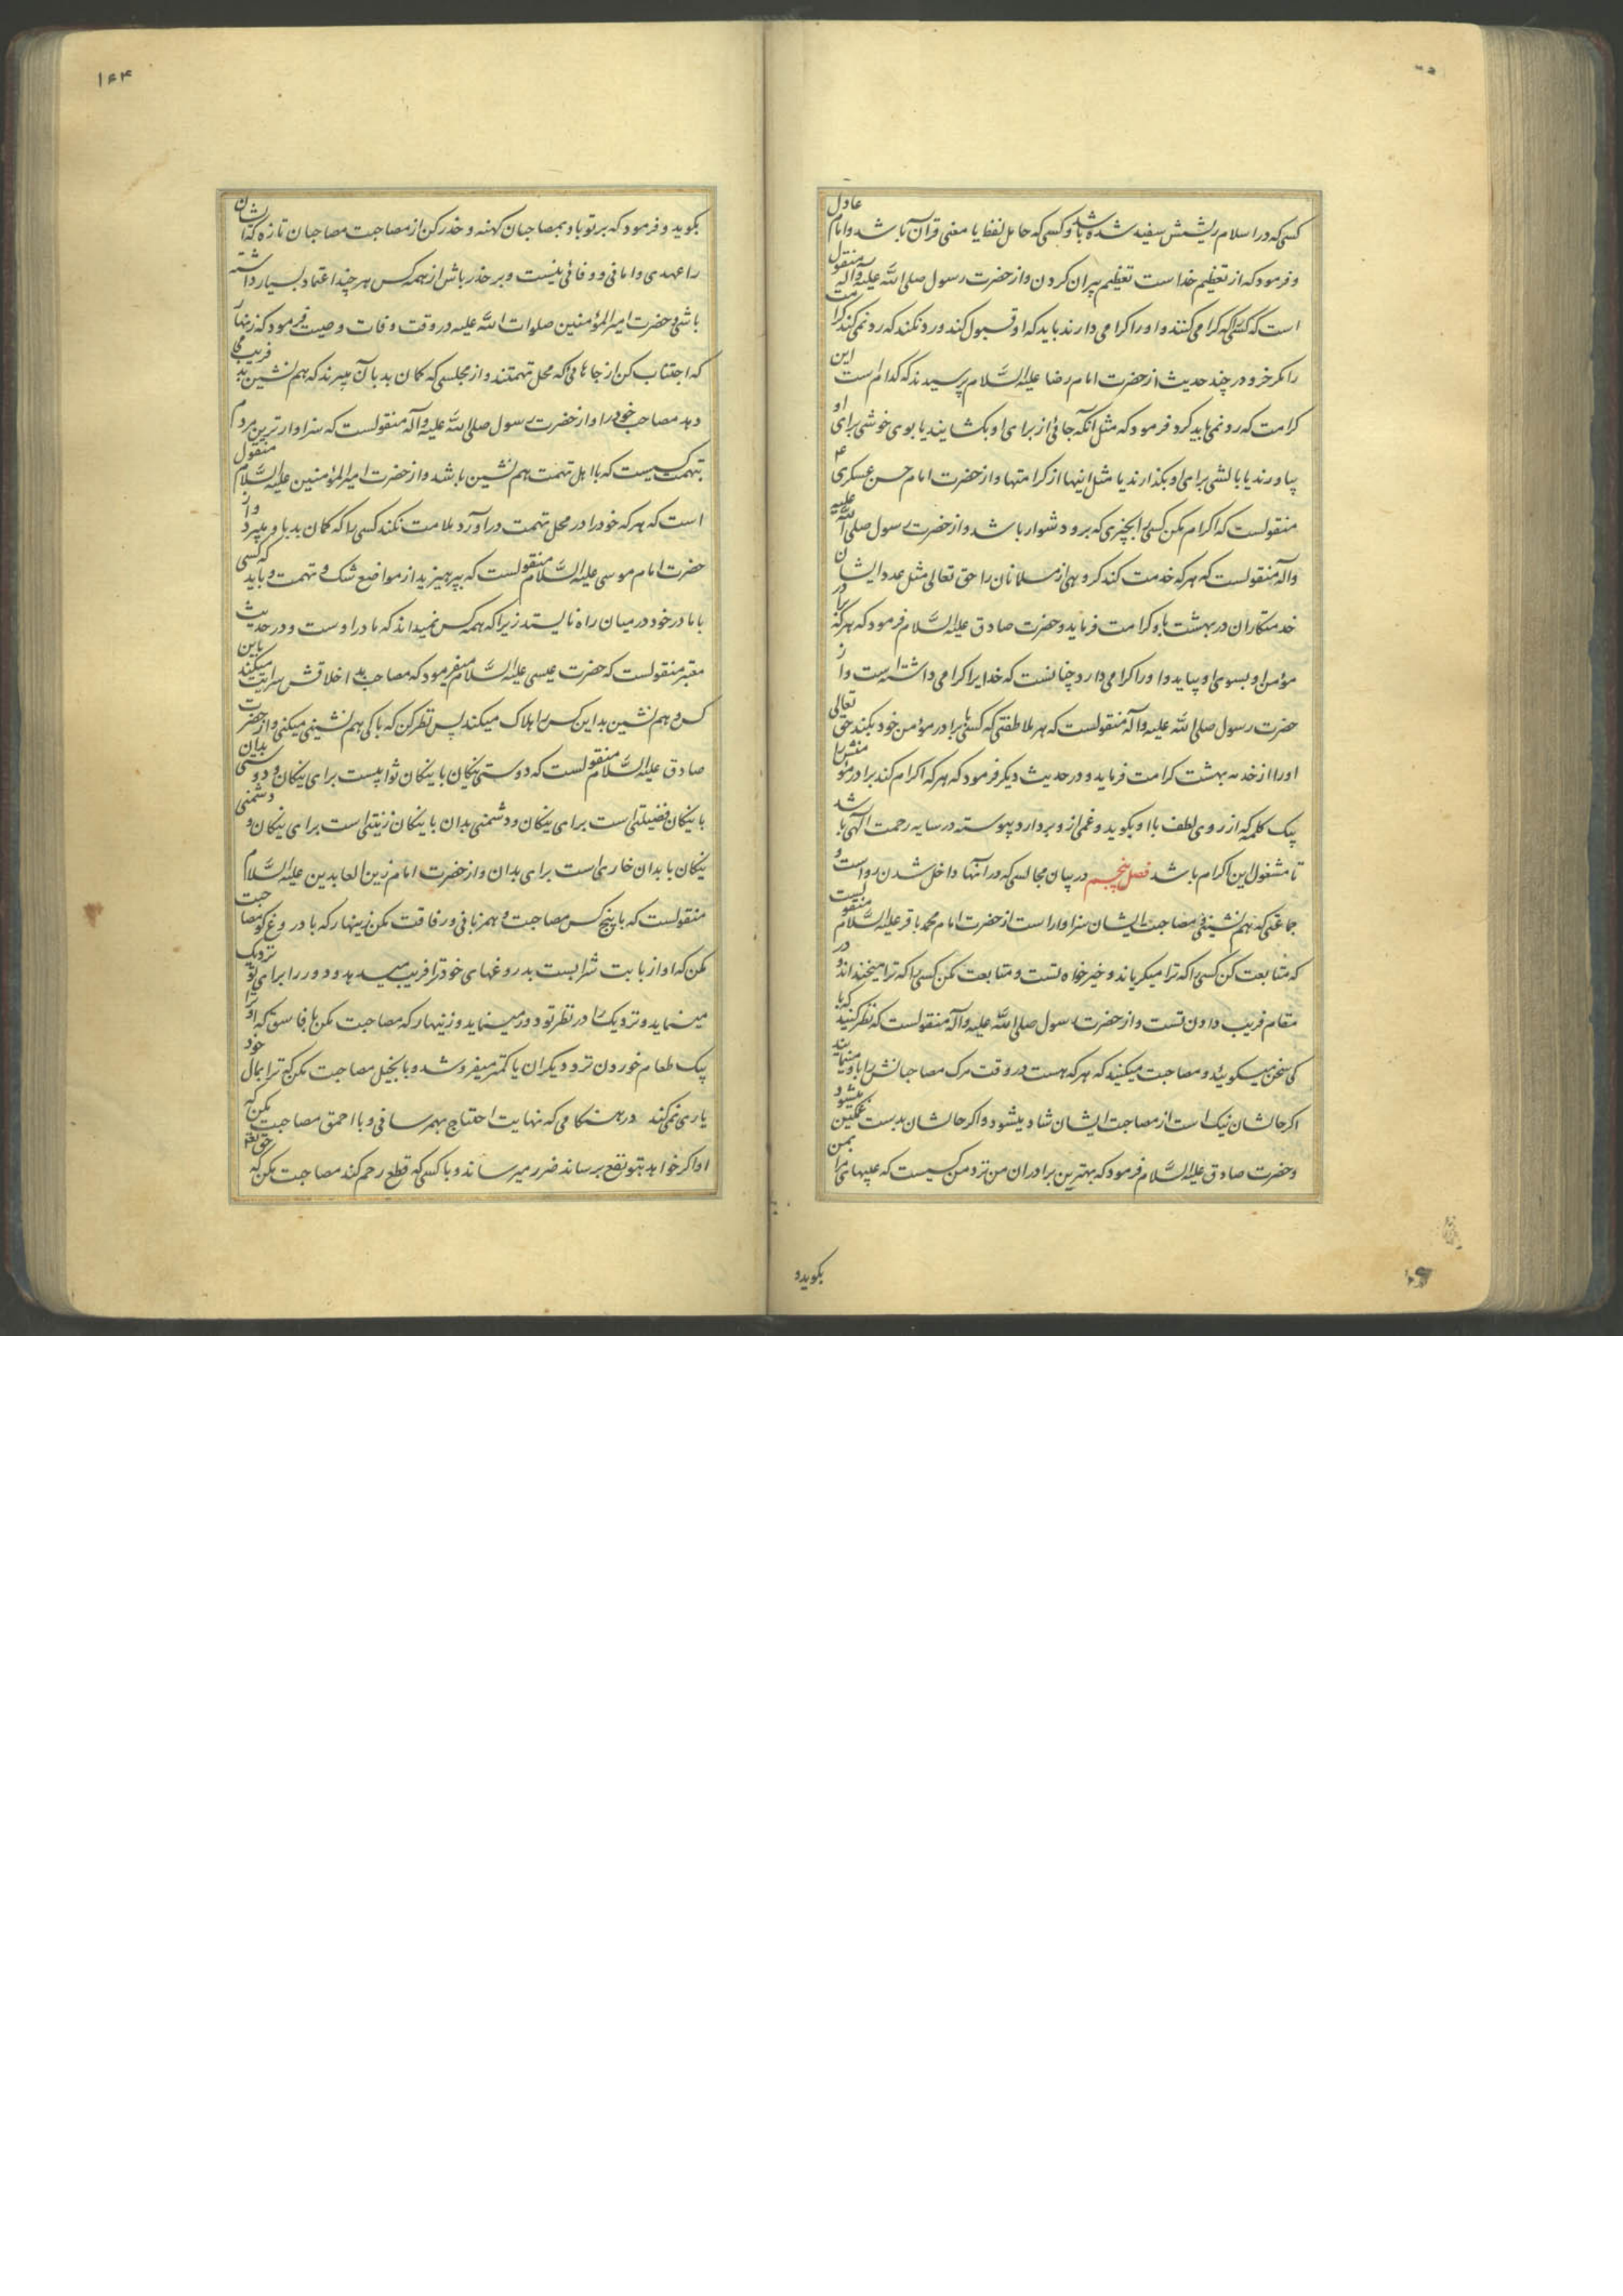 کسی که در اسلام ریشش سفید شده باشد و کسی که حامل لفظ یا معنی قرآن باشد و امام عادل
و فرمود که از تعظیم خداست تعظیم پیران کردن و از حضرت رسول صلی الله علیه و آله منقول
است که کسی را که گرامی کنند و او را گرامی دارند باید که او قبول کند و رد نکند که رد نمی کند کرامت
را مگر خر و در چند حدیث از حضرت امام رضا علیه السلام پرسیدند که کدام است این
کرامت که رد نمی باید کرد فرمود که مثل آنکه جائی از برای او بکشایند یا بوی خوشی برای او
بیاورند یا بالشی برای او بگذارند یا مثل اینها از کرامتها و از حضرت امام حسن عسکری ع
منقولست که اکرام مکن کسی را بچیزی که برو دشوار باشد و از حضرت رسول صلی الله علیه
و آله منقولست که هر که خدمت کند گروهی از مسلمانان را حق تعالی مثل عدد ایشان
خدمتکاران در بهشت باو کرامت فرماید و حضرت صادق علیه السلام فرمود که هر که برادر
مؤمن او بسوی او بیاید و او را گرامی دارد چنانست که خدا را گرامی داشته است و از
حضرت رسول صلی الله علیه و آله منقولست که هر ملاطفتی که کسی با برادر مؤمن خود بکند حق تعالی
او را از خدمه بهشت کرامت فرماید و در حدیث دیگر فرمود که هر که اکرام کند برادر مؤمنش را
بیک کلمه که از روی لطف با او بگوید و غمی از و بردارد پیوسته در سایه رحمت الهی باشد
تا مشغول این اکرام باشد فصل پنجم در بیان مجالسی که در آنها داخل شدن رواست و
جماعتی که همنشینی و مصاحبت ایشان سزاوار است از حضرت امام محمد باقر علیه السلام منقولست
که متابعت کن کسی را که ترا میگریاند و خیر خواه تست و متابعت مکن کسی را که ترا میخنداند و در
مقام فریب دادن تست و از حضرت رسول صلی الله علیه و آله منقولست که نظر کنید که با
کی سخن میگوئید و مصاحبت میکنید که هر که هست در وقت مرک مصاحبانش را باو مینمایند
اگر حالشان نیک است از مصاحبت ایشان شاد میشود و اگر حالشان بدست غمگین میشود
و حضرت صادق علیه السلام فرمود که بهترین برادران من نزد من کسیست که عیبهای مرا بمن
بگوید و
۱۶۴
بگوید و فرمود که بر تو باد بمصاحبان کهنه و حذر کن از مصاحبت مصاحبان تازه که ایشان
را عهدی و امانی و وفائی نیست و بر حذر باش از همه کس هر چند اعتماد بسیار داشته
باشی و حضرت امیر المؤمنین صلوات الله علیه در وقت وفات وصیت فرمود که زنهار
که اجتناب کن از جاهائی که محل تهمتند و از مجلسی که گمان بد بآن میبرند که هم نشین بد فریب می
دهد مصاحب خود را و از حضرت رسول صلی الله علیه و آله منقولست که سزاوارترین مردم
بتهمت کسیست که با اهل تهمت هم نشین باشد و از حضرت امیر المؤمنین علیه السلام منقول
است که هر که خود را در محل تهمت در آورد ملامت نکند کسی را که گمان بد باو میبرد و از
حضرت امام موسی علیه السلام منقولست که بپرهیزید از مواضع شک و تهمت و باید که کسی
با مادر خود در میان راه نایستد زیرا که همه کس نمیداند که مادر اوست و در حدیث
معتبر منقولست که حضرت عیسی علیه السلام میفرمود که مصاحب بد اخلاقش سرایت میکند باین
کس و هم نشین بد این کس را هلاک میکند پس نظر کن که با کی هم نشینی میکنی و از حضرت
صادق علیه السلام منقولست که دوستی نیکان با نیکان ثوابیست برای نیکان و دوستی بدان
با نیکان فضیلتی است برای نیکان و دشمنی بدان با نیکان زینتی است برای نیکان و دشمنی
نیکان با بدان خاری است برای بدان و از حضرت امام زین العابدین علیه السلام
منقولست که با پنج کس مصاحبت و همزبانی و رفاقت مکن زینهار که با دروغگو مصاحبت
مکن که او از بابت شرابست بدروغهای خود ترا فریب میدهد و دور را برای تو نزدیک
مینماید و نزدیک را در نظر تو دور مینماید و زینهار که مصاحبت مکن با فاسق که او ترا
بیک طعام خوردن نزد دیگران یا کمتر میفروشد و با بخیل مصاحبت مکن که ترا بمال خود
یاری نمی کند در هنگامی که نهایت احتیاج بهم رسانی و با احمق مصاحبت مکن که
او اگر خواهد بتو نفع برساند ضرر میرساند و با کسی که قطع رحم کند مصاحبت مکن که حق تعالی